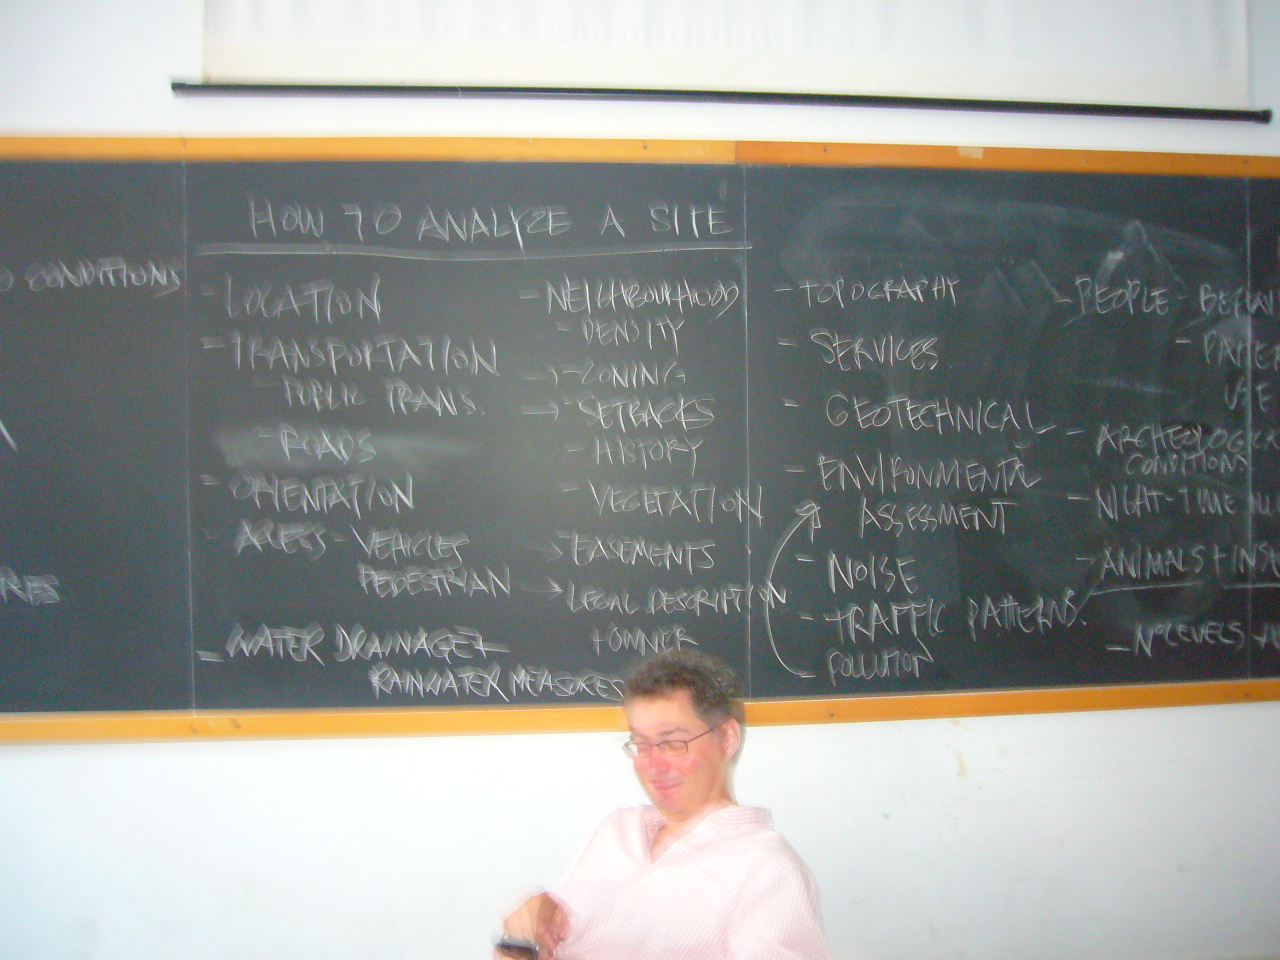 HOW TO ANALYZE A SITE
CONDITIONS
- LOCATION
- TRANSPORTATION
- PUBLIC TRANS.
- ROADS
- ORIENTATION
- ACCESS - VEHICLES
PEDESTRIAN
- WATER DRAINAGE +
RAINWATER MEASURES
- NEIGHBOURHOOD
- DENSITY
- ZONING
→ SETBACKS
- HISTORY
- VEGETATION
→ EASEMENTS
→ LEGAL DESCRIPTION
+ OWNER
- TOPOGRAPHY
- SERVICES
- GEOTECHNICAL
- ENVIRONMENTAL
ASSESSMENT
- NOISE
- TRAFFIC PATTERNS.
- POLLUTION
- PEOPLE -
USE
- ARCHEOLOGICA
CONDITIONS
- NIGHT-TIME
- ANIMALS + INSE